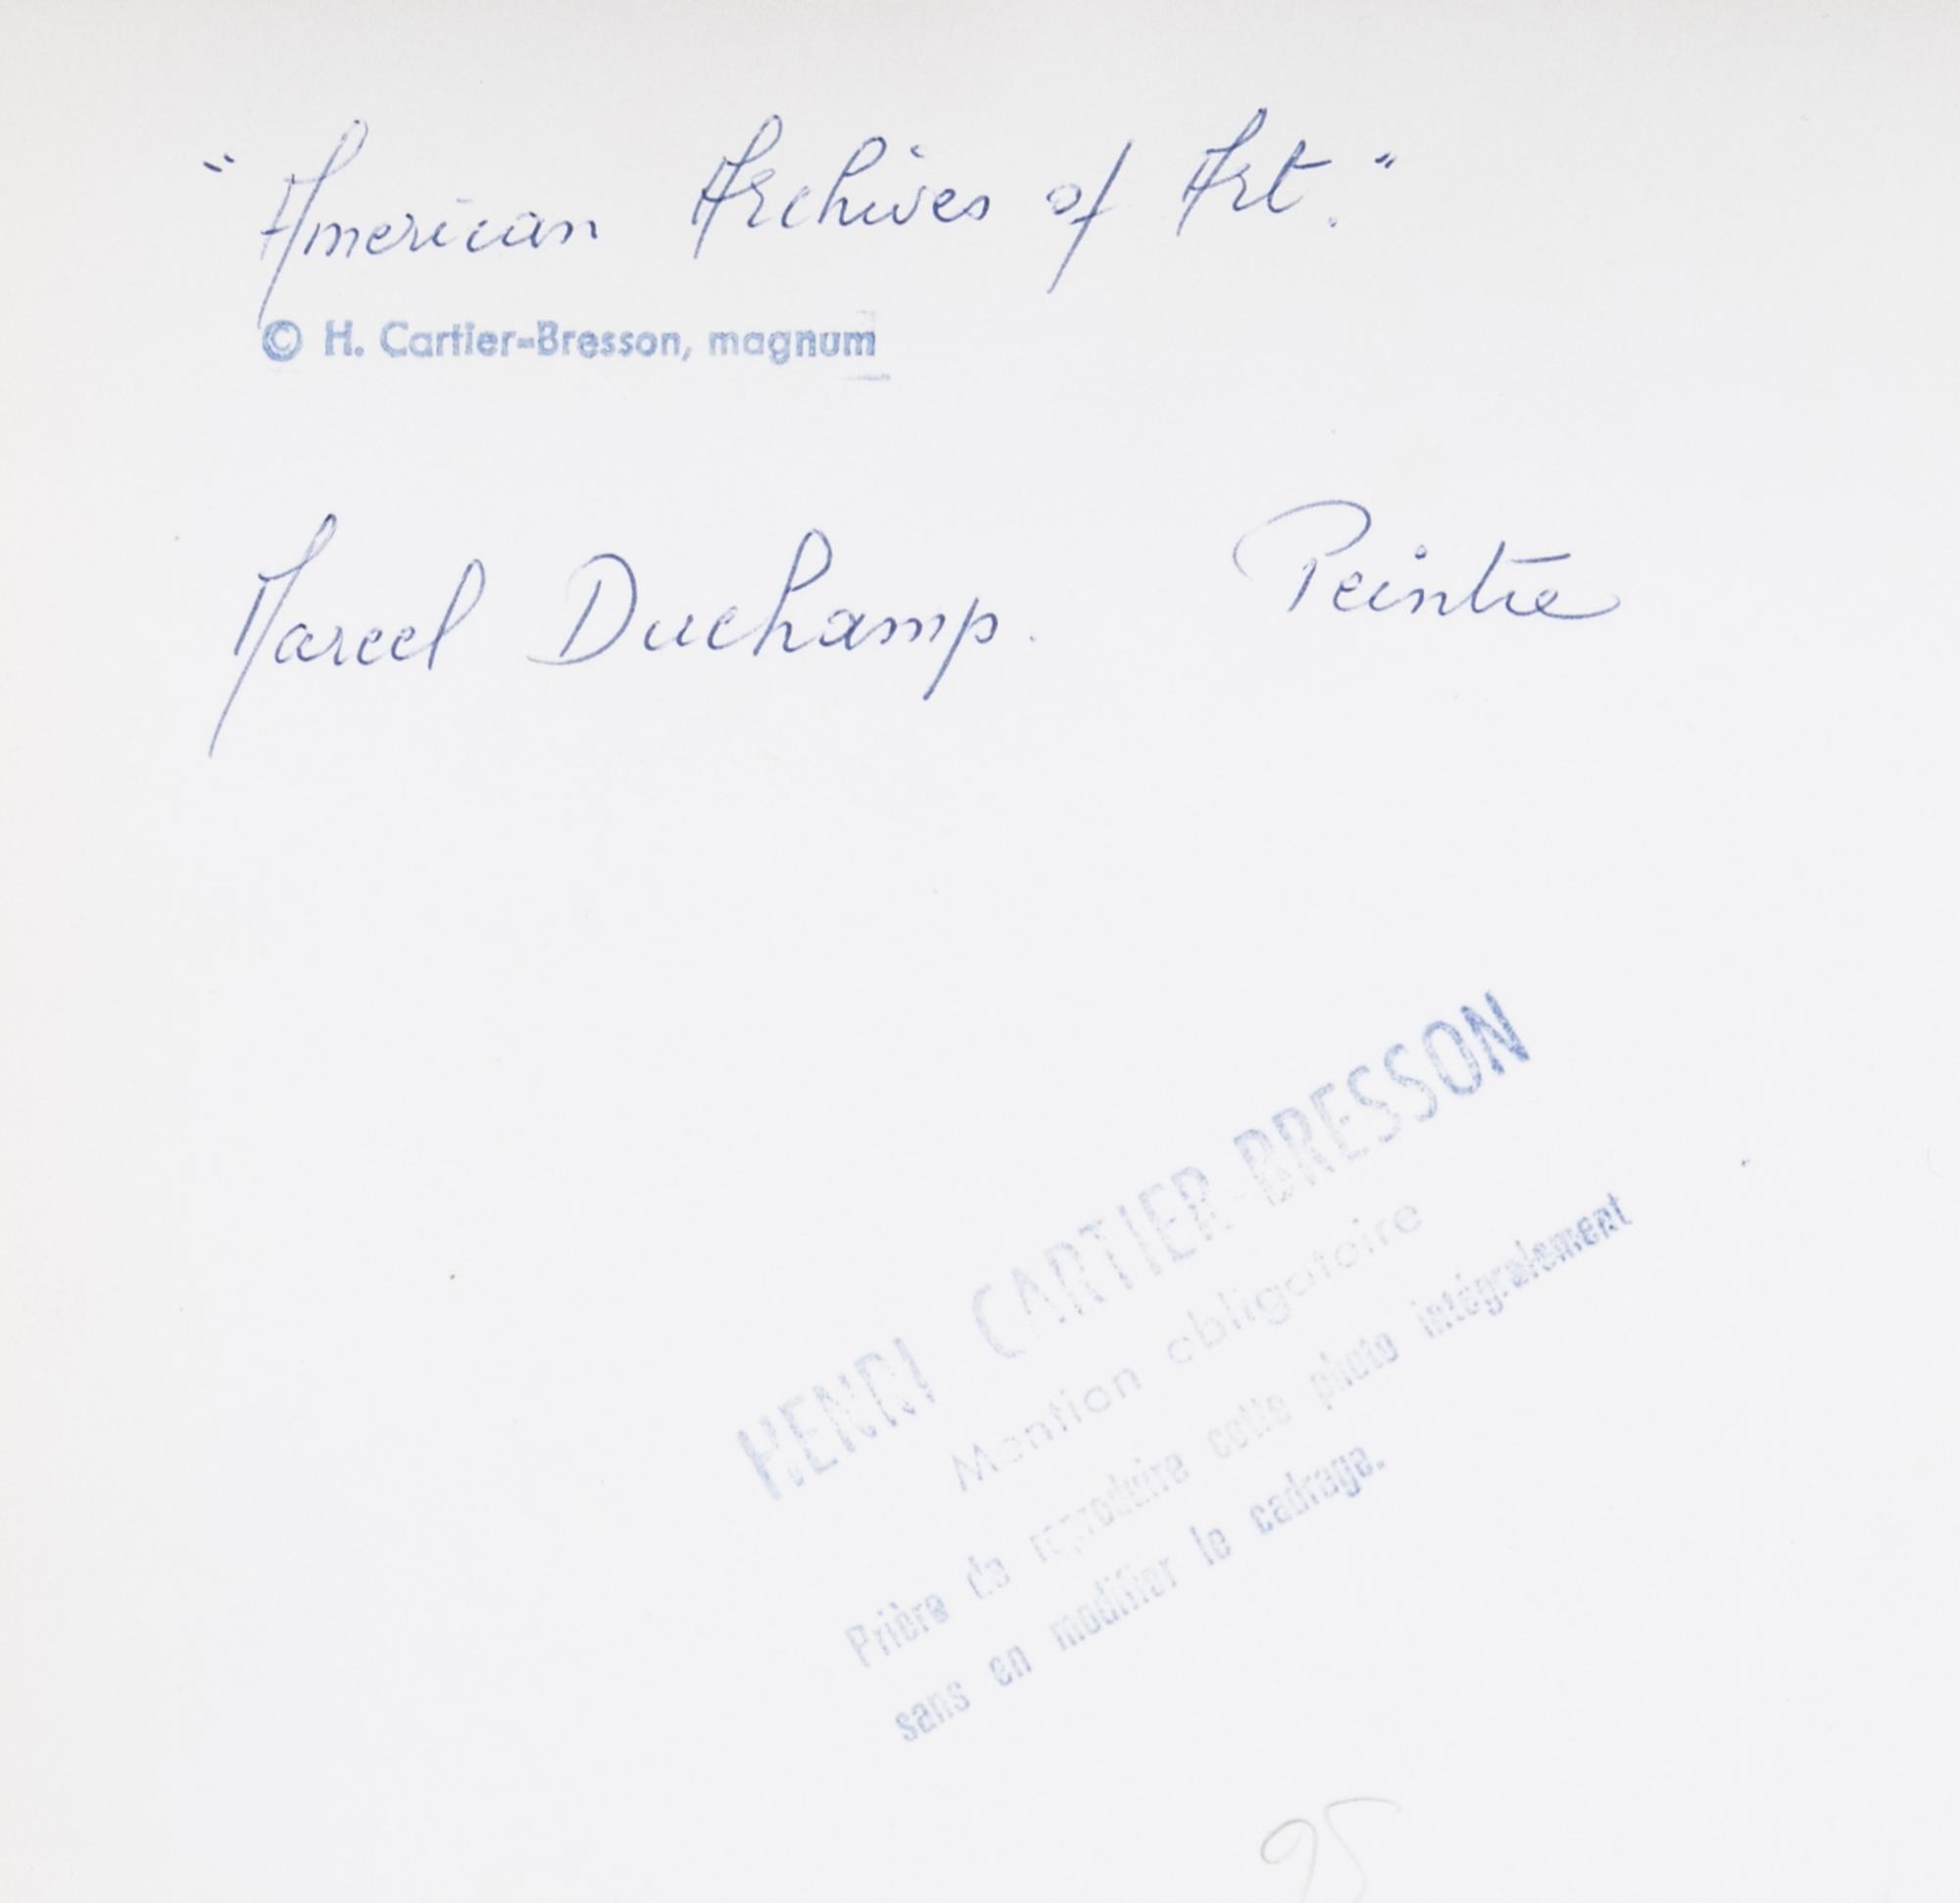 "American Archives of Art."
© H. Cartier-Bresson, magnum
Marcel Duchamp. Peintre
HENRI CARTIER-BRESSON
Mention obligatoire
Prière de reproduire cette photo intégralement
sans en modifier le cadrage.
95